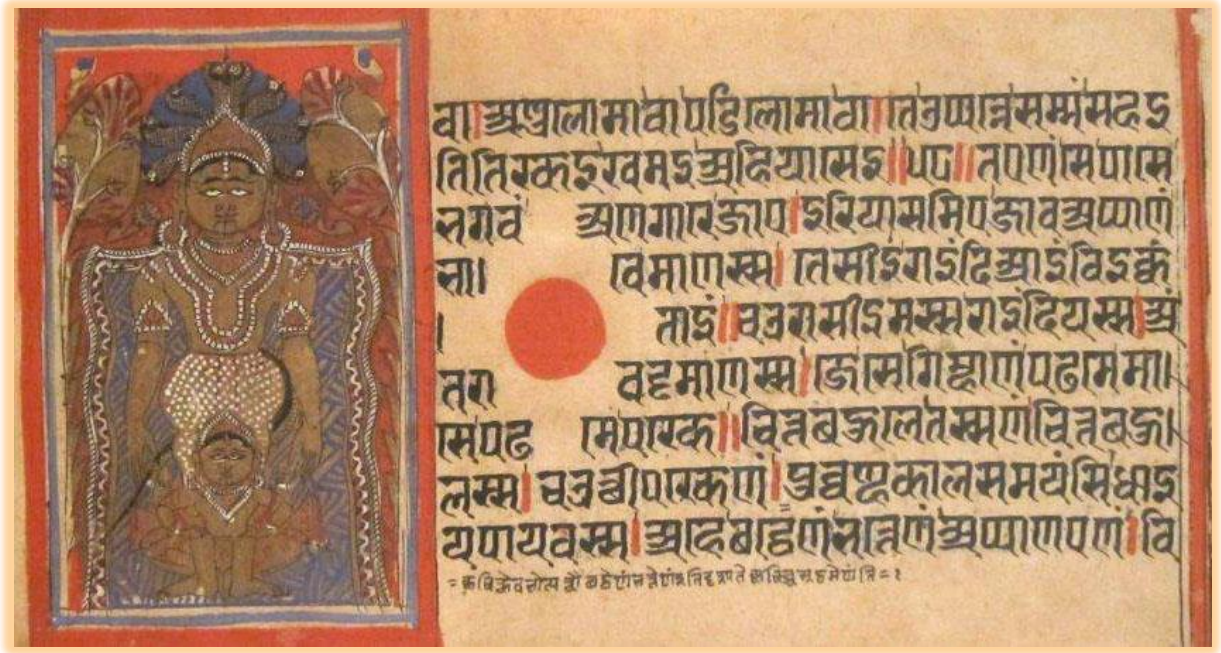 वा।अणुलोमावापडिलोमावा॥तेउप्पन्नेसम्मंसहइ
तितिरकइखमइअहियासेइ॥५५॥तएणंसेपासे
भगवं अणगारेजाए।इरियासमिएजावअप्पाणं
भा। वेमाणस्स।तेसीइंराइंदिआइंविइक्कं
। ताइं॥चउरासीइमस्सराइंदियस्स।अं
तरा वट्टमाणस्स।जेसेगिह्माणंपढमेमा।
सेपढ मेपरके॥चित्तबहुलेतस्सणंचित्तबहु।
लस्स।चउत्थीपरकेणं।पुव्वण्हकालसमयंसिधाइ
यपायवस्स। भत्तेणंअप्पाणएणं।वि